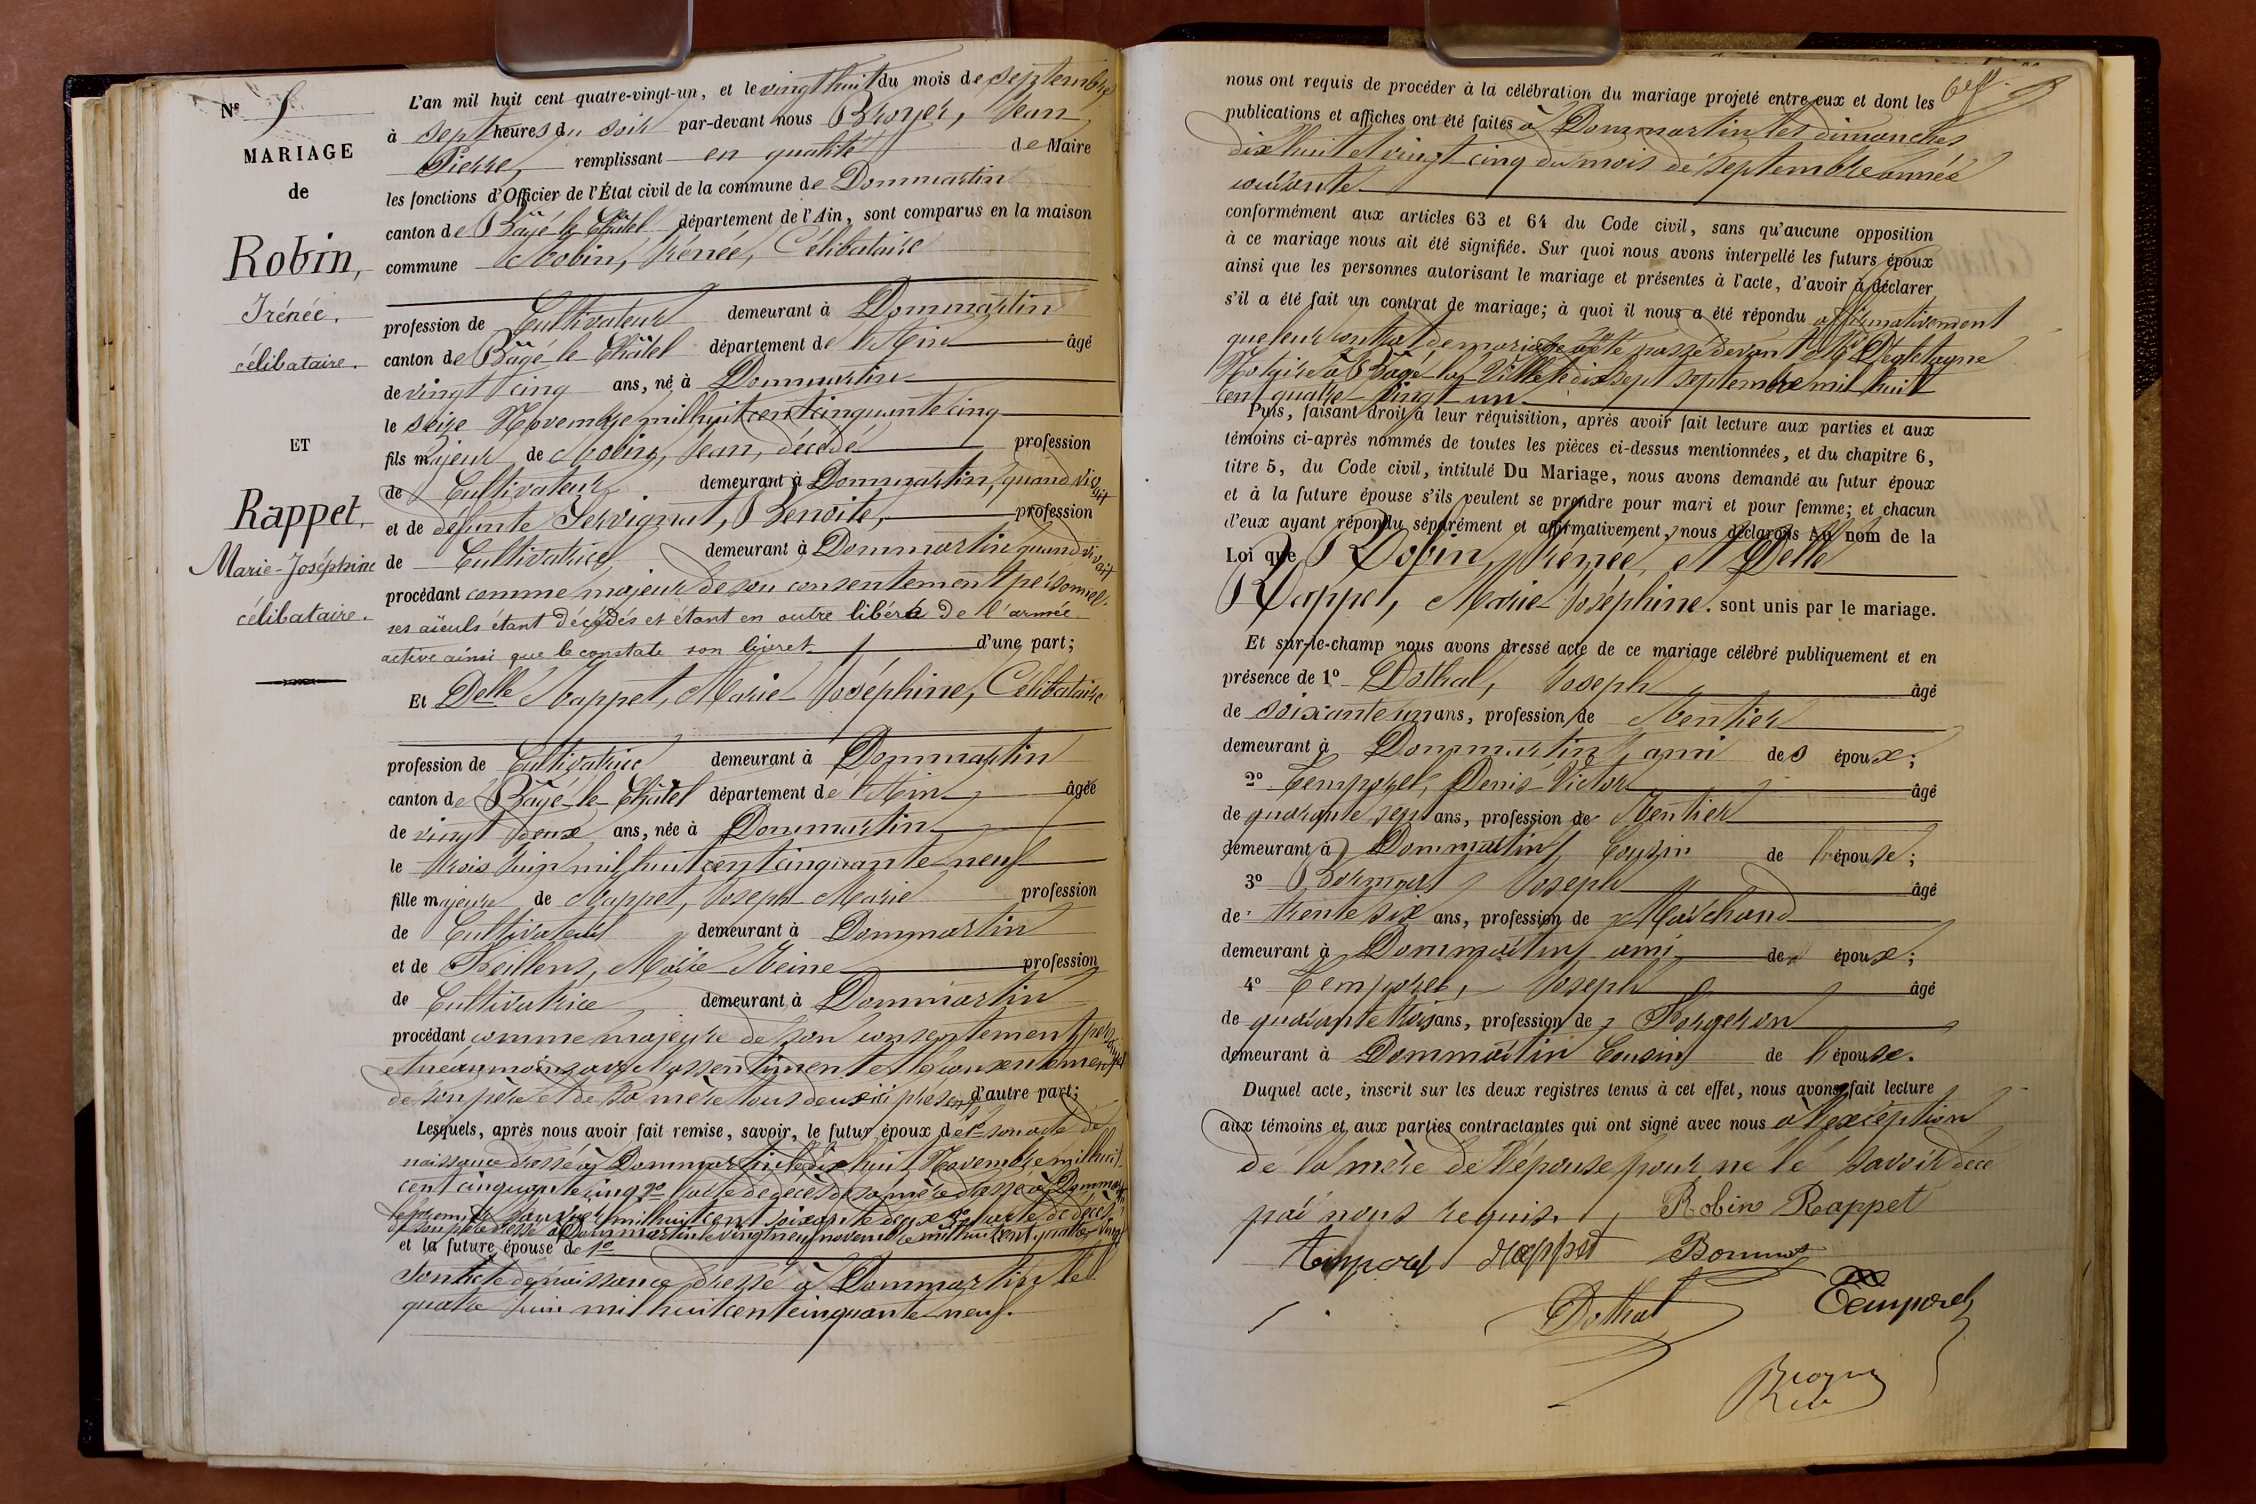 Nº
MARIAGE
de
Robin,
Irénée.
célibataire.
ET
Rappet,
Marie-Joséphine
célibataire.
L'an mil huit cent quatre-vingt-un, et le vingt huit du mois de septembre
à sept heures du soir par-devant nous Broyer, Jean
Pierre, remplissant en qualité de Maire
les fonctions d'Officier de l'État civil de la commune de Dommartin
canton de Bâgé-le-Châtel département de l'Ain, sont comparus en la maison
commune Robin, Irénée, Célibataire
profession de Cultivateur demeurant à Dommartin
canton de Bâgé-le-Châtel département de l'Ain âgé
de vingt cinq ans, né à Dommartin
le seize Novembre mil huit cent cinquante cinq
fils majeur de Robin, Jean, décédé profession
de Cultivateur demeurant à Dommartin, quand vivait
et de défunte Servignat, Benoite, profession
de Cultivatrice demeurant à Dommartin quand vivait
procédant comme majeur de son consentement personnel.
ses aïeuls étant décédés et étant en outre libéré de l'armée
active ainsi que le constate son livret d'une part;
Et Delle Rappet, Marie-Joséphine, Célibataire
profession de Cultivatrice demeurant à Dommartin
canton de Bâgé-le-Châtel département de l'Ain âgée
de vingt deux ans, née à Dommartin
le trois Juin mil huit cent cinquante-neuf
fille majeure de Rappet, Joseph-Marie profession
de Cultivateur demeurant à Dommartin
et de Feillens, Marie-Reine profession
de Cultivatrice demeurant à Dommartin
procédant comme majeure de son consentement personnel
et néanmoins avec l'assentiment et le consentement
de son père et de sa mère tous deux ici présents d'autre part;
Lesquels, après nous avoir fait remise, savoir, le futur époux de 1º son acte de
naissance dressé à Dommartin le dix huit Novembre mil huit
cent cinquante cinq 2º l'acte de décès de sa mère dressé à Dommartin
le premier Janvier mil huit cent soixante deux 3º l'acte de décès
de son père dressé à Dommartin le vingt neuf novembre mil huit cent quatre vingt
et la future épouse de 1º
son acte de naissance dressé à Dommartin le
quatre Juin mil huit cent cinquante neuf.
nous ont requis de procéder à la célébration du mariage projeté entre eux et dont les
publications et affiches ont été faites à Dommartin les dimanches
dix huit et vingt cinq du mois de septembre année
courante
conformément aux articles 63 et 64 du Code civil, sans qu'aucune opposition
à ce mariage nous ait été signifiée. Sur quoi nous avons interpellé les futurs époux
ainsi que les personnes autorisant le mariage et présentes à l'acte, d'avoir à déclarer
s'il a été fait un contrat de mariage; à quoi il nous a été répondu affirmativement
que leur contrat de mariage a été passé devant Me
Notaire à Bâgé-la-Ville le dix sept septembre mil huit
cent quatre-vingt un
Puis, faisant droit à leur réquisition, après avoir fait lecture aux parties et aux
témoins ci-après nommés de toutes les pièces ci-dessus mentionnées, et du chapitre 6,
titre 5, du Code civil, intitulé Du Mariage, nous avons demandé au futur époux
et à la future épouse s'ils veulent se prendre pour mari et pour femme; et chacun
d'eux ayant répondu séparément et affirmativement, nous déclarons Au nom de la
Loi que Robin, Irénée, et Delle
Rappet, Marie-Joséphine. sont unis par le mariage.
Et sur-le-champ nous avons dressé acte de ce mariage célébré publiquement et en
présence de 1º Dothal, Joseph âgé
de soixante un ans, profession de Rentier
demeurant à Dommartin, ami des époux;
2º Temporel, Denis-Victor âgé
de quarante sept ans, profession de Rentier
demeurant à Dommartin, Cousin de l'épouse;
3º Joseph âgé
de trente six ans, profession de Marchand
demeurant à Dommartin, ami des époux;
4º Temporel, Joseph âgé
de quarante trois ans, profession de Forgeron
demeurant à Dommartin Cousin de l'épouse.
Duquel acte, inscrit sur les deux registres tenus à cet effet, nous avons fait lecture
aux témoins et aux parties contractantes qui ont signé avec nous à l'exception
de la mère de l'épouse pour ne le savoir de ce
par nous requis. Robin Rappet
Temporel Rappet
Dothal Temporel